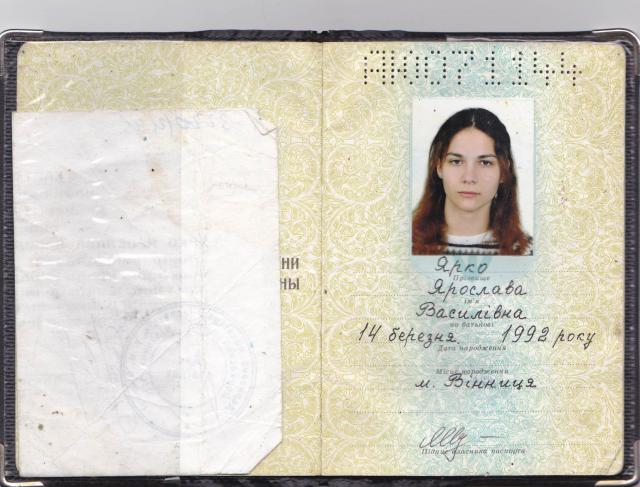 НИ
НЫ
Ярко
Прізвище
Ярослава
ім'я
Василівна
по батькові
14 березня 1992 року
Дата народження
Місце народження
м. Вінниця
Підпис власника паспорта